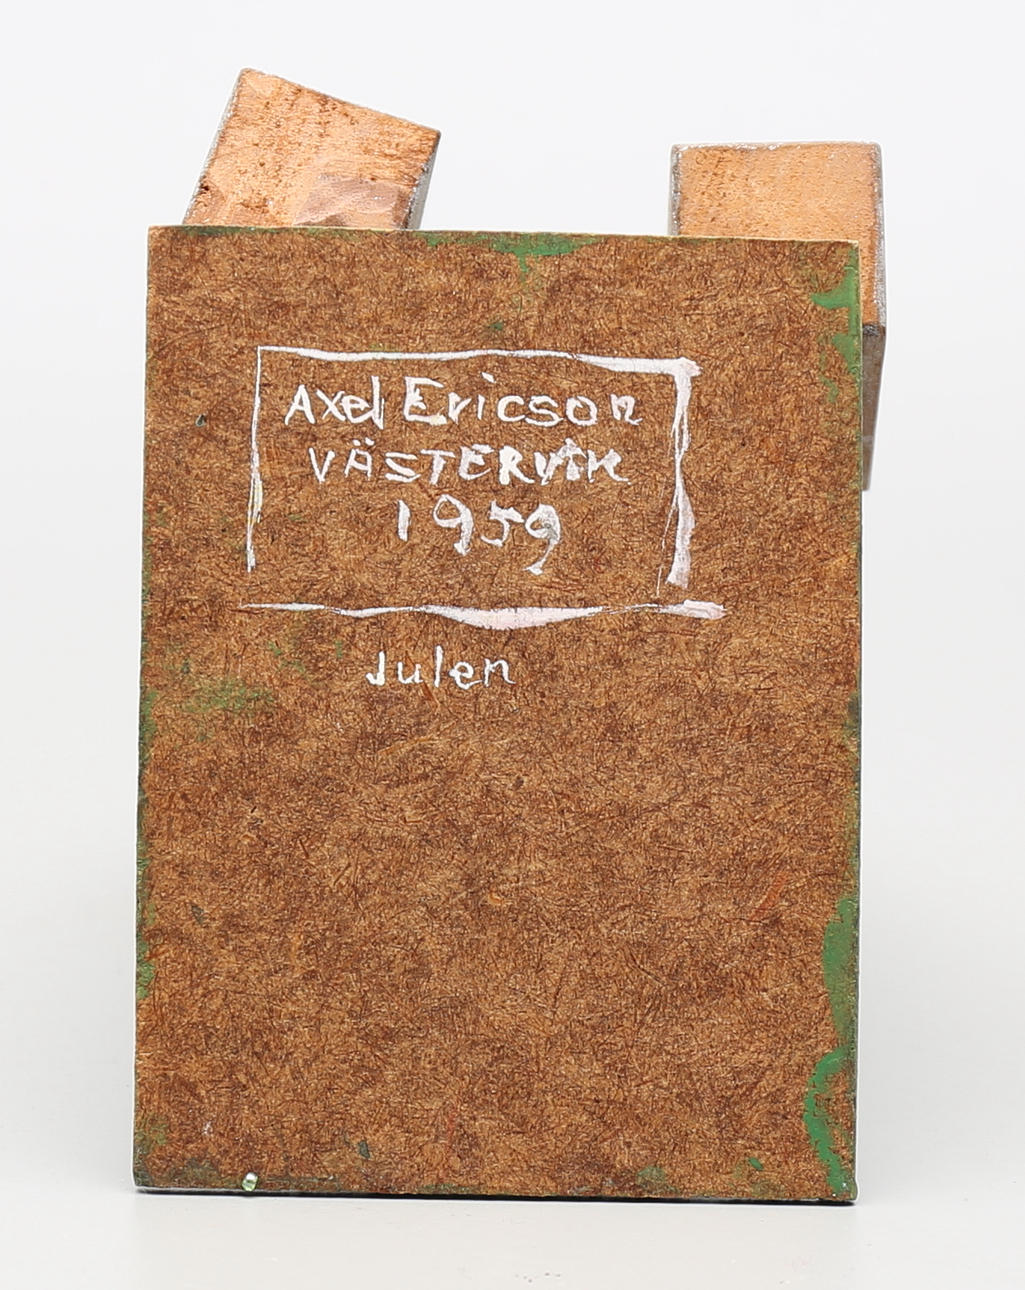 Axel Ericson
VÄSTERVIK
1959
Julen